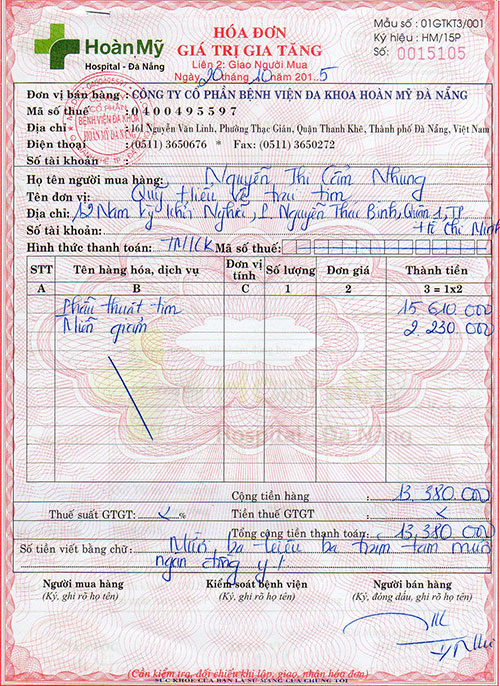 HoànMỹ
Hospital - Đà Nẵng
HÓA ĐƠN
GIÁ TRỊ GIA TĂNG
Liên 2: Giao Người Mua
Ngày 20 tháng 10 năm 201..5
Mẫu số : 01GTKT3/001
Ký hiệu : HM/15P
Số: 0015105
Đơn vị bán hàng : CÔNG TY CỔ PHẦN BỆNH VIỆN ĐA KHOA HOÀN MỸ ĐÀ NẴNG
Mã số thuế : 0400495597
Địa chỉ : 161 Nguyễn Văn Linh, Phường Thạc Gián, Quận Thanh Khê, Thành phố Đà Nẵng, Việt Nam
Điện thoại : (0511) 3650676 * Fax: (0511) 3650272
Số tài khoản
CỔ PHẦN
BỆNH VIỆN ĐA KHOA
HOÀN MỸ ĐÀ NẴNG
Họ tên người mua hàng: Nguyễn Thị Cẩm Nhung
Tên đơn vị: Quỹ thiếu về trái tim
Địa chỉ: 12 Nam Kỳ Khởi Nghĩa, P. Nguyễn Thái Bình, Quận 1, TP
Số tài khoản: Hồ Chí Minh
Hình thức thanh toán: TM/CK Mã số thuế:
STT Tên hàng hóa, dịch vụ Đơn vị tính Số lượng Đơn giá Thành tiền
A B C 1 2 3 = 1x2
Phẫu thuật tim 15 610 000
Miễn giảm 2 230 000
HOÀN MỸ
Hospital - Đà Nẵng
Cộng tiền hàng : 13.380.000
Thuế suất GTGT: % Tiền thuế GTGT :
Tổng cộng tiền thanh toán: 13,380 000
Số tiền viết bằng chữ: Mười ba triệu ba trăm tám mươi
ngàn đồng y!
Người mua hàng Kiểm soát bệnh viện Người bán hàng
(Ký, ghi rõ họ tên) (Ký, ghi rõ họ tên) (Ký, đóng dấu, ghi rõ họ tên)
(Cần kiểm tra, đối chiếu khi lập, giao, nhận hóa đơn)
SỨC KHỎE CỦA BẠN LÀ SỨ MẠNG CỦA CHÚNG TÔI